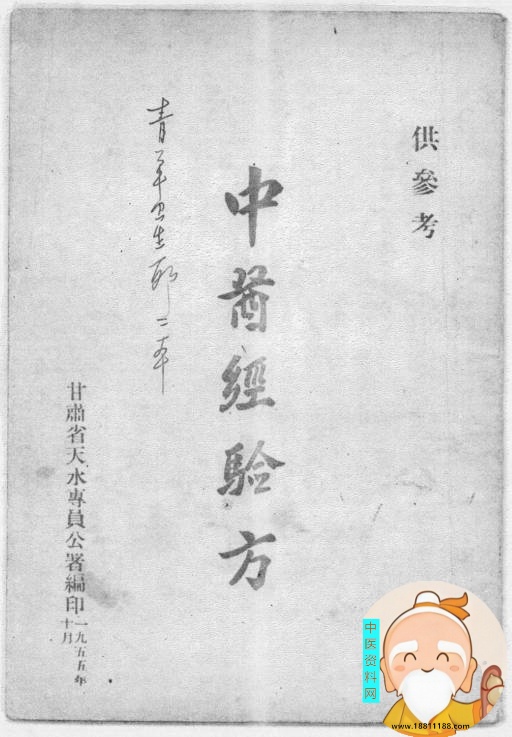 供參考
中醫經驗方
二本
甘肅省天水專員公署編印
一九五五年
十月
中医资料网
www.18811188.com